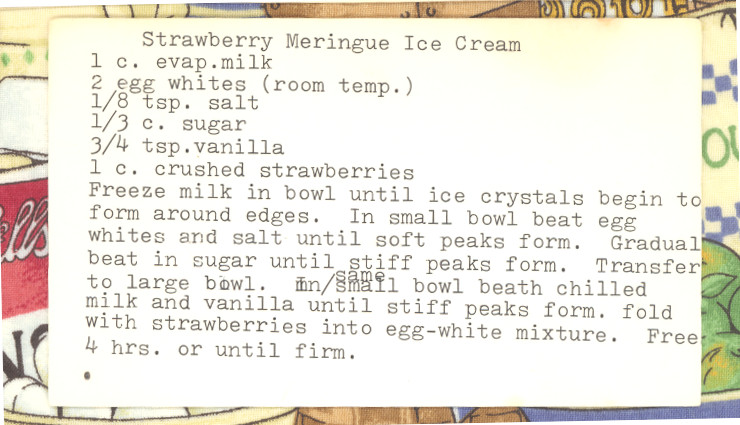 Strawberry Meringue Ice Cream
1 c. evap.milk
2 egg whites (room temp.)
1/8 tsp. salt
1/3 c. sugar
3/4 tsp.vanilla
1 c. crushed strawberries
Freeze milk in bowl until ice crystals begin to
form around edges.  In small bowl beat egg
whites and salt until soft peaks form.  Gradual
beat in sugar until stiff peaks form.  Transfer
same
to large bowl.  In/small bowl beath chilled
milk and vanilla until stiff peaks form. fold
with strawberries into egg-white mixture.  Free
4 hrs. or until firm.